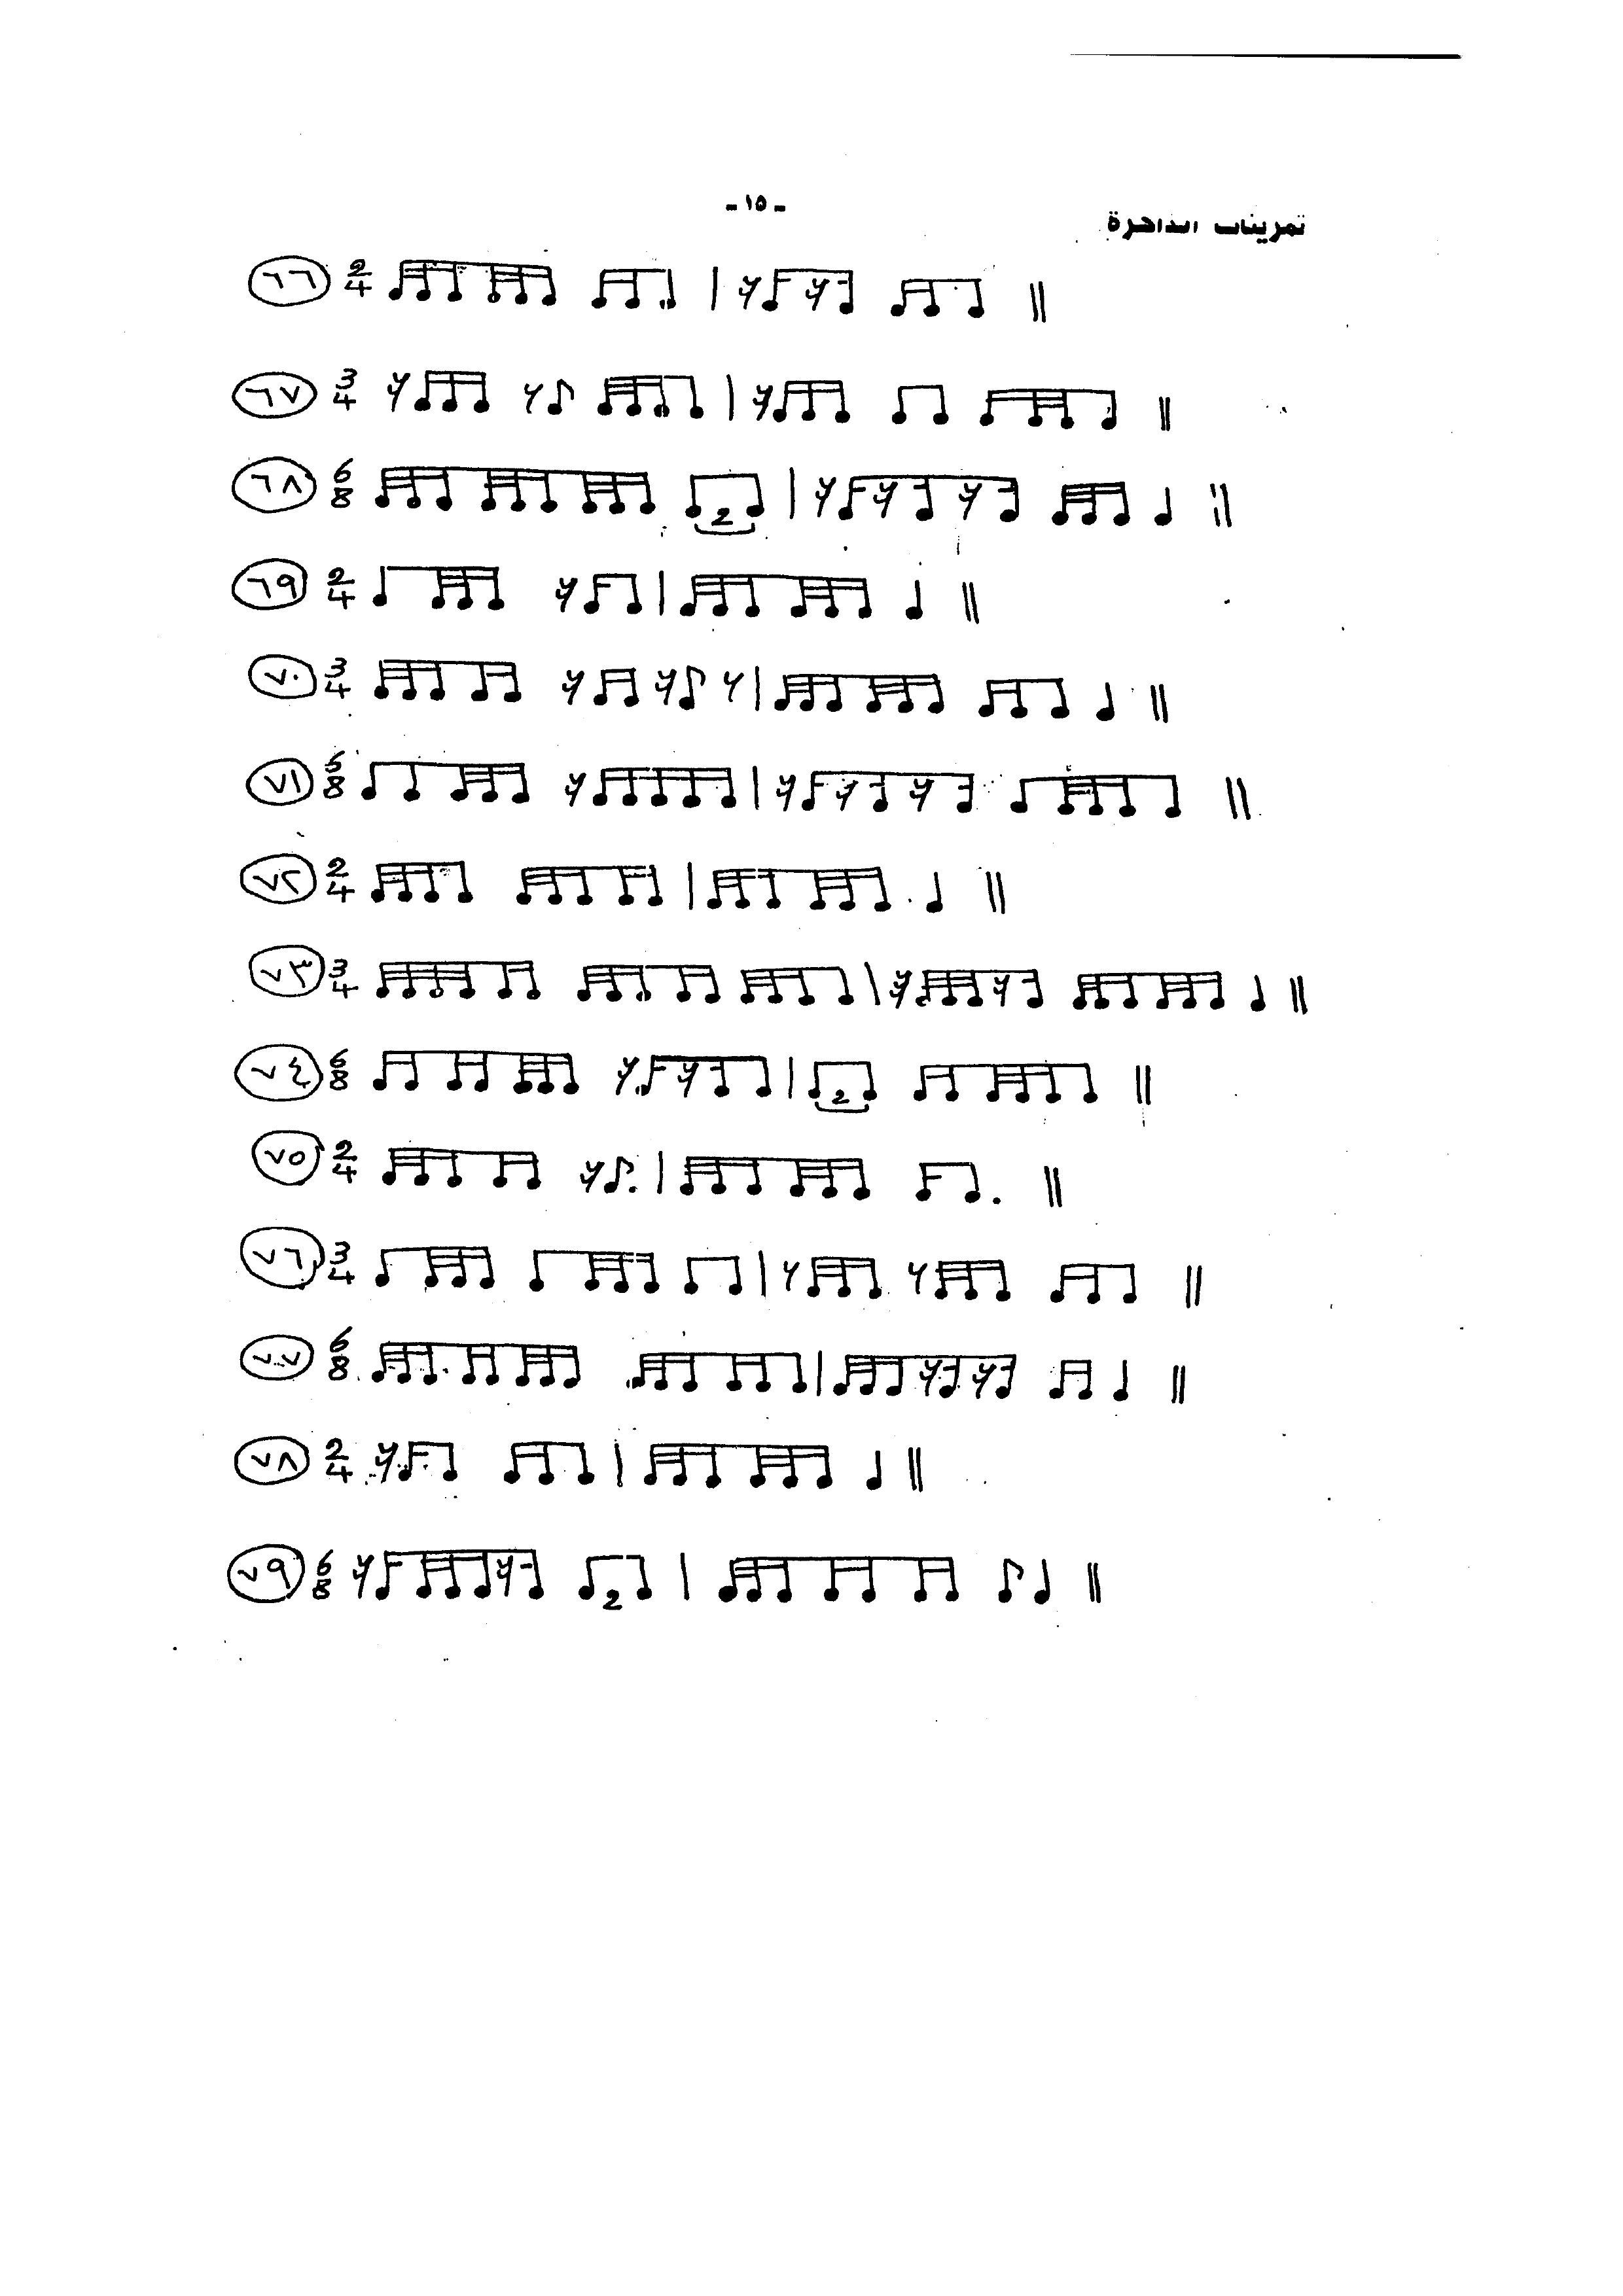 - ١٥ -
تمرينات الذاهرة
٦٦ 2/4
٦٧ 3/4
٦٨ 6/8 2
٦٩ 2/4
٧٠ 3/4
٧١ 6/8
٧٢ 2/4
٧٣ 3/4
٧٤ 6/8 2
٧٥ 2/4
٧٦ 3/4
٧٧ 6/8
٧٨ 2/4
٧٩ 6/8 2